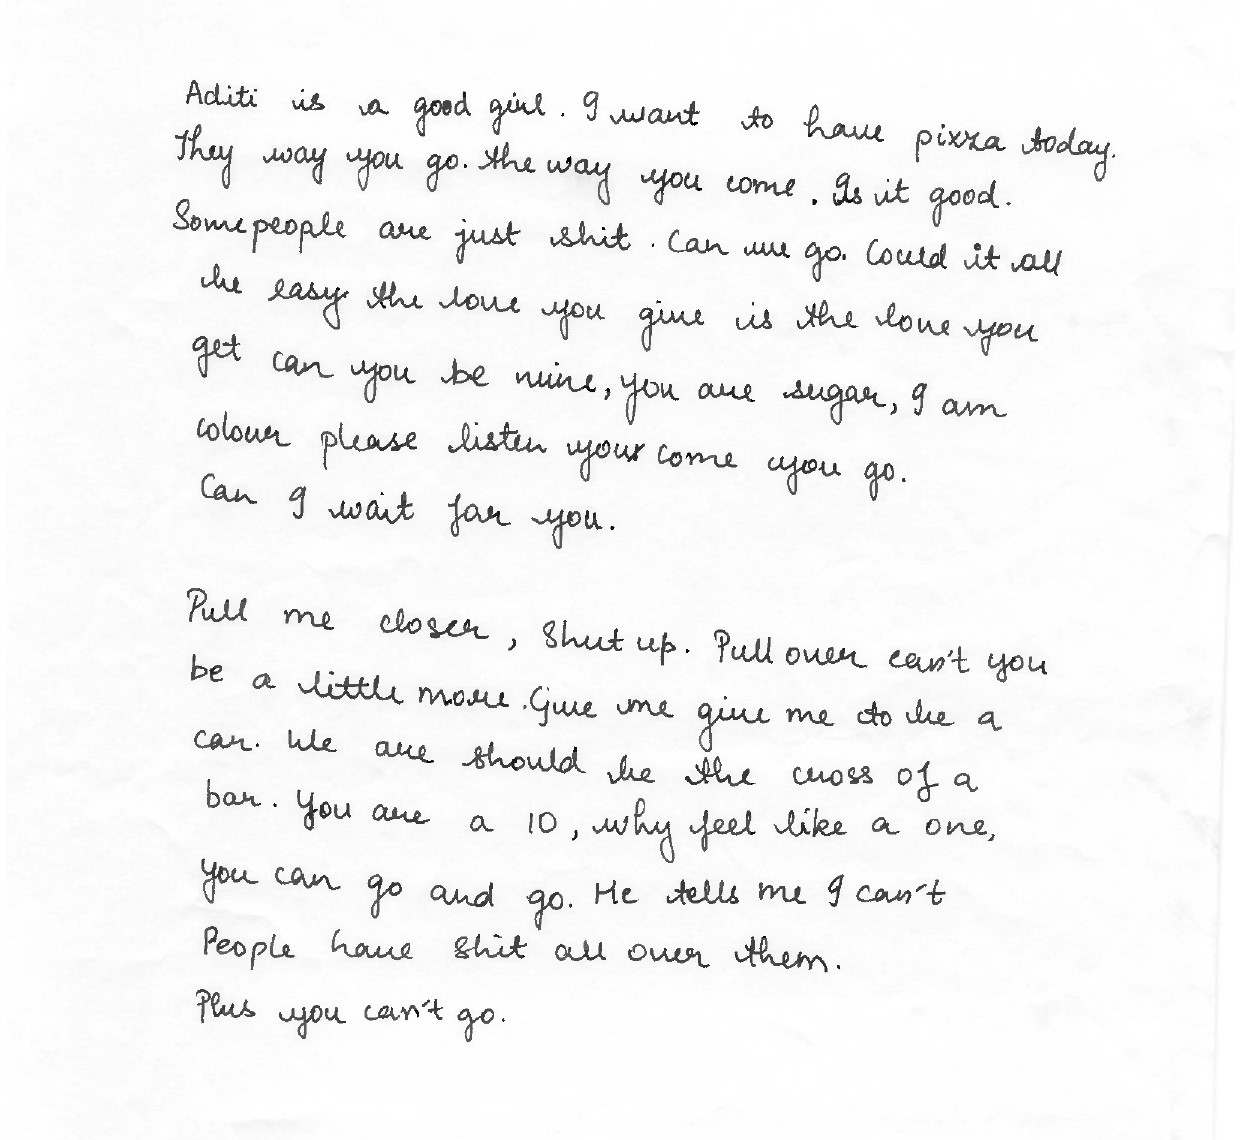 Aditi is a good girl. I want to have pizza today.
They way you go. the way you come. Is it good.
Somepeople are just shit. Can we go. Could it all
be easy. the love you give is the love you
get can you be mine, you are sugar, I am
colour please listen your come you go.
Can I wait for you.
Pull me closer, Shut up. Pull over can't you
be a little more. Give me give me to be a
car. We are should be the cross of a
bar. You are a 10, why feel like a one,
you can go and go. He tells me I can't
People have shit all over them.
Plus you can't go.